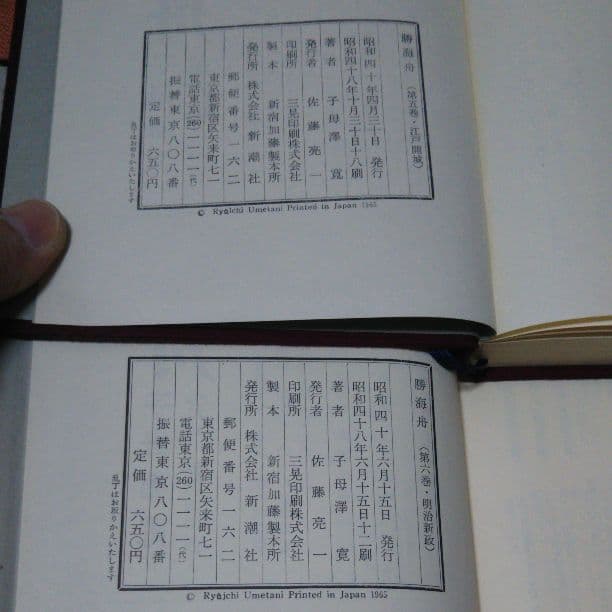 勝海舟 〈第五巻・江戸開城〉
昭和四十年四月三十日 発行
昭和四十八年十月三十日十八刷
著者 子母澤寛
発行者 佐藤亮一
印刷所 三晃印刷株式会社
製本 新宿加藤製本所
発行所 株式会社 新潮社
郵便番号一六二
東京都新宿区矢来町七一
電話東京(260)一一一一(代)
振替東京八〇八番
定価 六五〇円
乱丁はお取りかえいたします
© Ryūichi Umetani Printed in Japan 1965
勝海舟 〈第六巻・明治新政〉
昭和四十年六月十五日 発行
昭和四十八年六月十五日十二刷
著者 子母澤寛
発行者 佐藤亮一
印刷所 三晃印刷株式会社
製本 新宿加藤製本所
発行所 株式会社 新潮社
郵便番号一六二
東京都新宿区矢来町七一
電話東京(260)一一一一(代)
振替東京八〇八番
定価 六五〇円
乱丁はお取りかえいたします
© Ryūichi Umetani Printed in Japan 1965